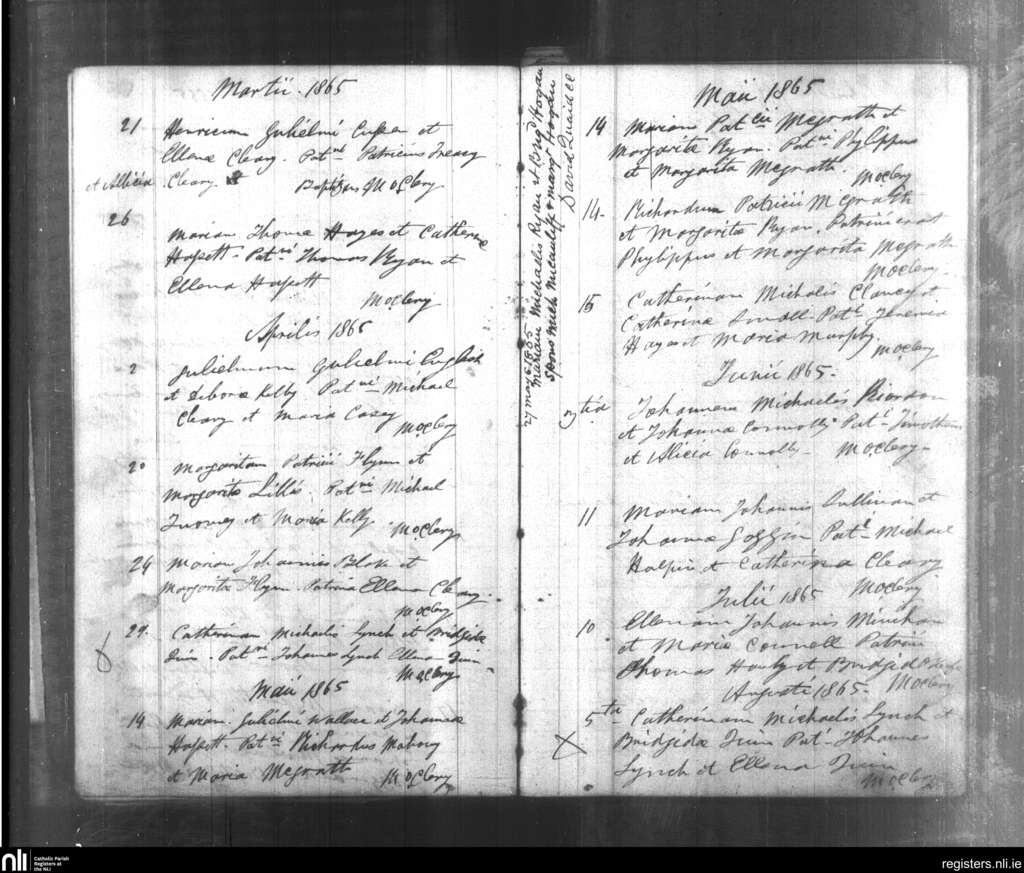 Martii 1865
21 Henricum Gulielmi Cussen et
Ellenæ Cleary. Patni Patricius Treacy
et Allicia Cleary
Baptizans M O Clery
26
Mariam Thomæ Hayes et Catherinæ
Hassett. Patni Thomas Ryan et
Ellena Hassett
M O Clery
Aprilis 1865
2 Julielmum Gulielmi English
et Deboræ Kelly Patni Michael
Cleary et Maria Casey
M O Clery
20 Margaritam Patricii Flynn et
Margaritæ Lillis. Patni Michael
Twomey et Maria Kelly
M O Clery
Mariam Johannis et
Margaritæ Flynn. Patrina Ellena Cleary.
M O Clery
29. Catherinam Michaelis Lynch et Bridgidæ
Patni Johannes Lynch Ellena
M O Clery
Maii 1865
14 Mariam. Gulielmi Wallace et Johannæ
Hassett. Patni Richardus Mahony
et Maria Megrath
M O Clery
27 May 1865
Mariam Michaelis Ryan et Brigd Hogan
Spons Mich McAuliff & Margt Hogan
David Quaid CC
Maii 1865
14 Mariam Patricii Megrath et
Margaritæ Ryan. Patni Phylippus
et Margarita Megrath.
M O Clery
14. Richardum Patricii Megrath
et Margaritæ Ryan. Patrini erant
Phylippus et Margarita Megrath
M O Clery.
15 Catherinam Michalis Clancy et
Catherinæ Patni Jeremia
Hayes et Maria Murphy.
M O Clery
Junii 1865.
3 tia Johannem Michaelis Riordan
et Johannæ Connolly Patni Timotheus
et Alicia Connolly. M O Clery.
11 Mariam Johannis Sullivan et
Johannæ Goggin Patni Michael
Halpin et Catherina Cleary
M O Clery
Julii 1865
10 Ellenam Johannis Minihan
et Maria Connoll Patrini
Thomas et Bridgid
M O Clery
Augusti 1865.
5ta Catherinam Michaelis Lynch et
Bridgidæ Patni Johannes
Lynch et Ellena
M O Clery
nli
Catholic Parish
Registers at
the NLI
registers.nli.ie